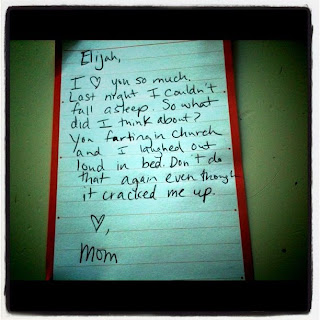 Elijah,
I ♡ you so much.
Last night I couldn't
fall asleep. So what
did I think about?
You farting in church
and I laughed out
loud in bed. Don't do
that again even though
it cracked me up.
♡,
Mom